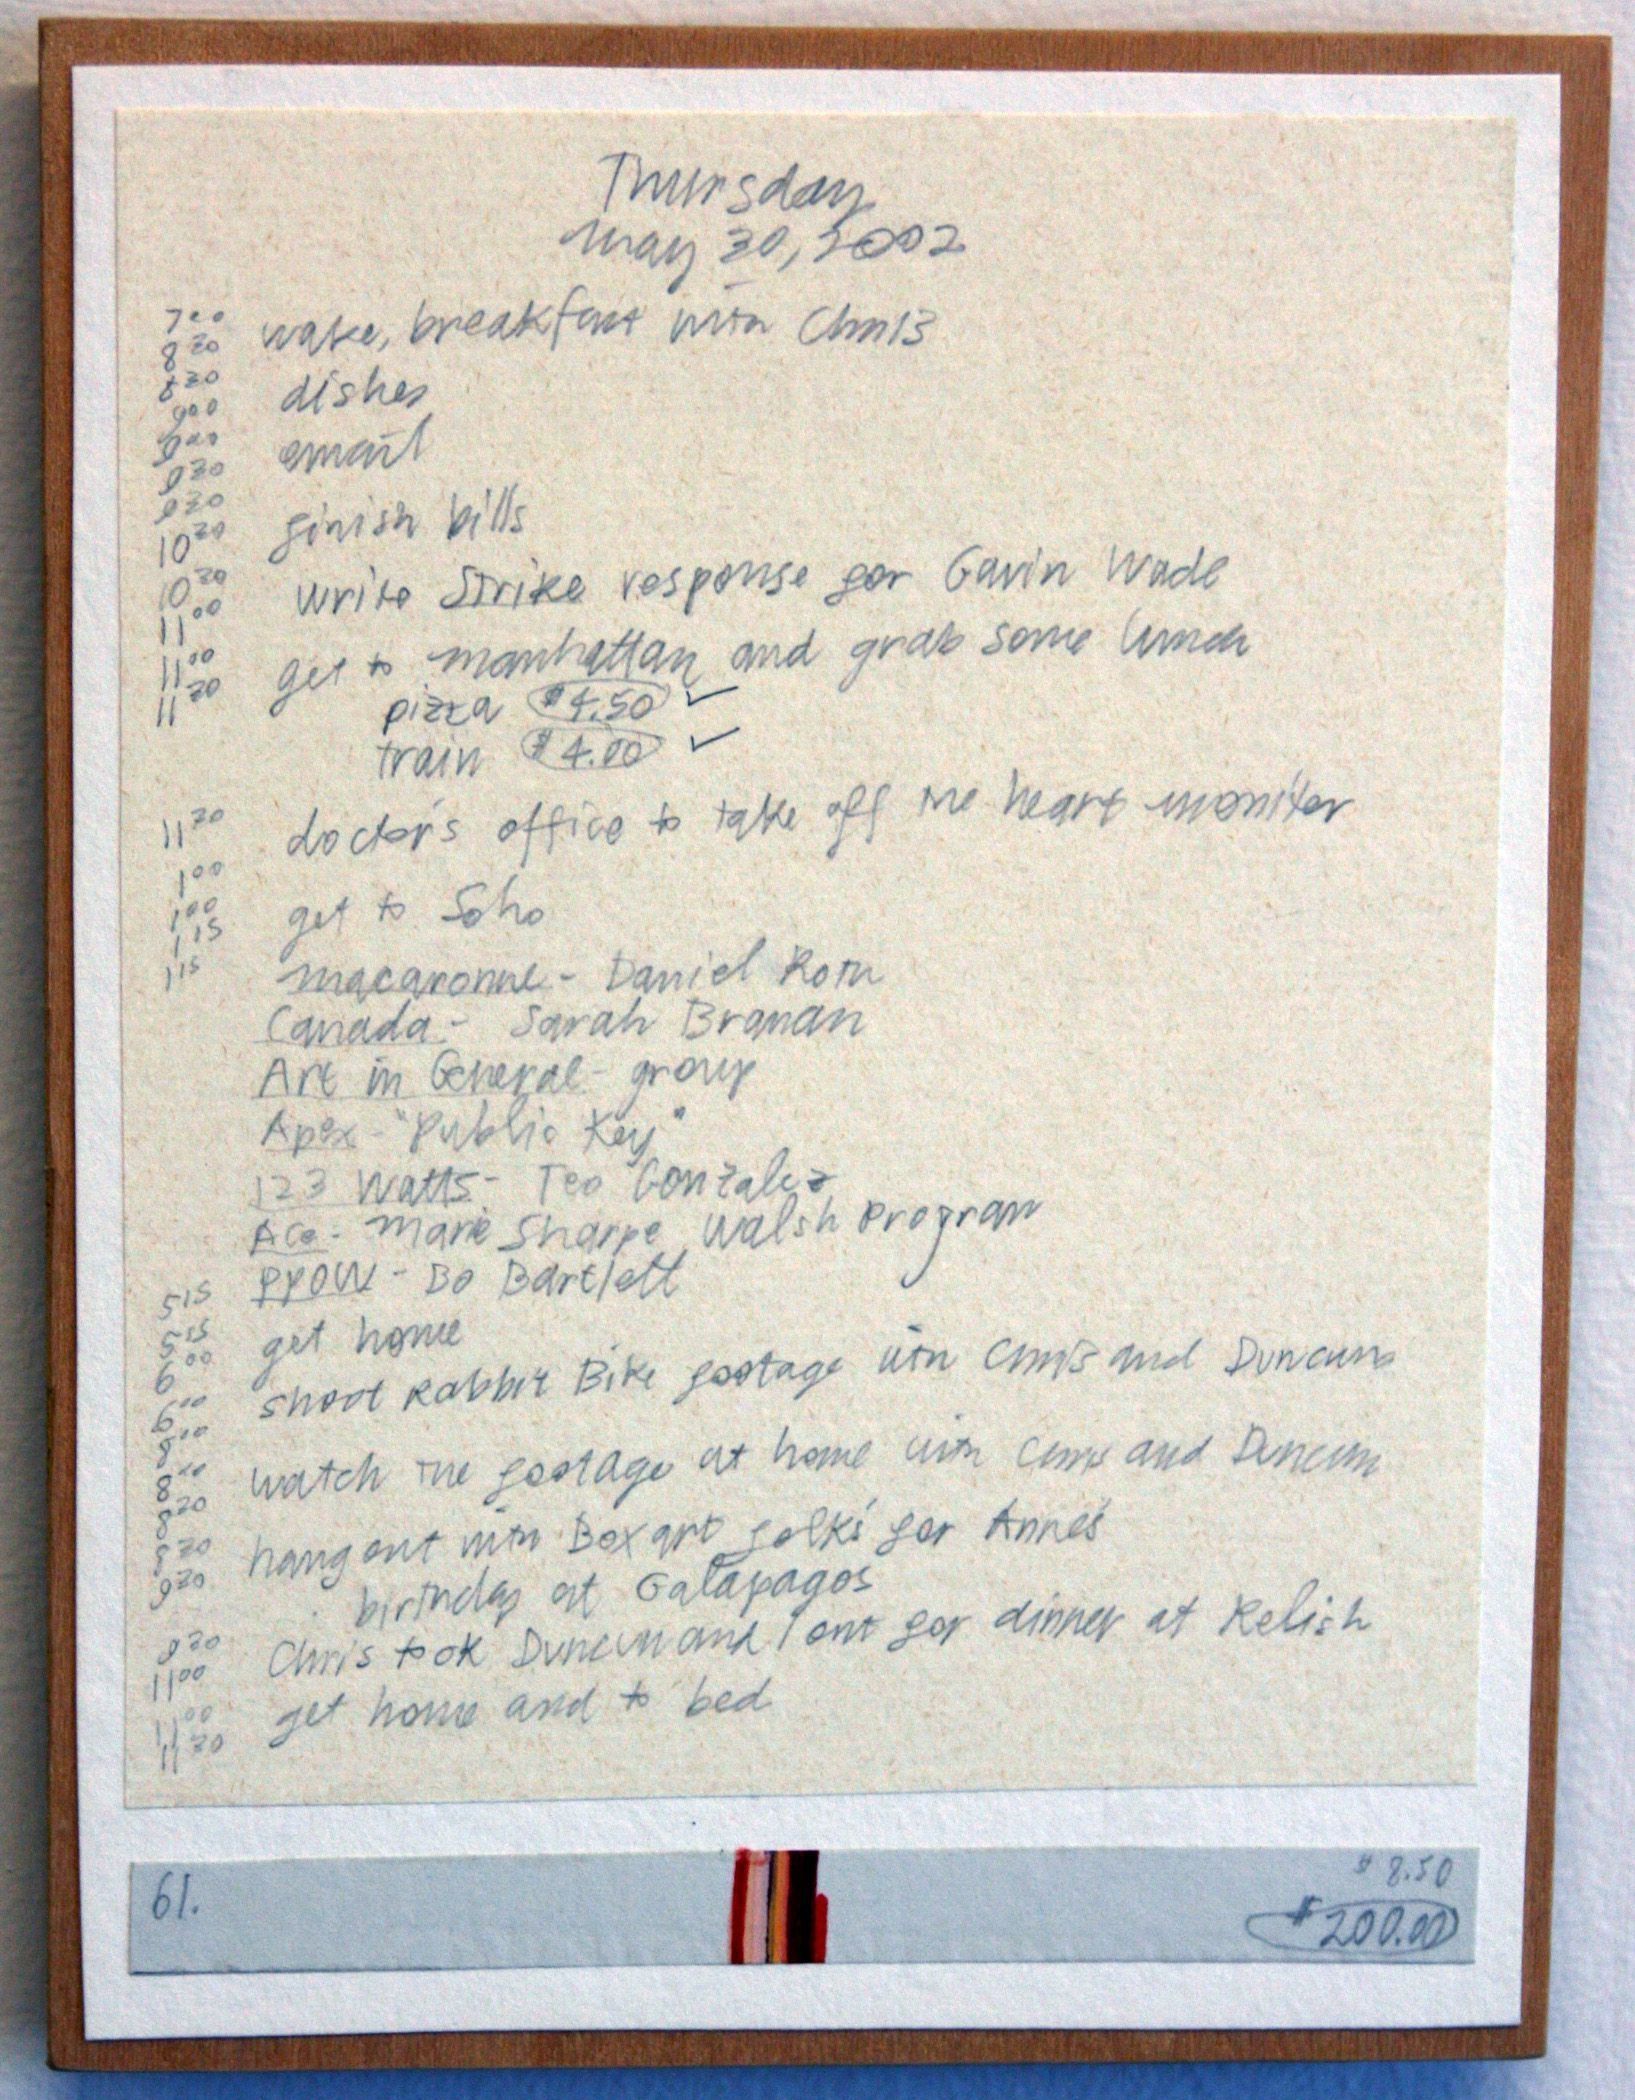 Thursday
May 30, 2002
7 00
8 30 wake, breakfast with Chris
8 30
9 00 dishes
9 00
9 30 email
9 30
10 30 finish bills
10 30
11 00 write Strike response for Gavin Wade
11 00
11 30 get to manhattan and grab some lunch
pizza $4.50 ✓
train $4.00 ✓
11 30
1 00 doctor's office to take off the heart moniter
1 00
1 15 get to Soho
1 15 macaronne - Daniel Roth
Canada - Sarah Braman
Art in General - group
Apex - "Public Key"
123 Watts - Teo Gonzalez
Ace - Marie Sharpe Walsh Program
5 15 PPOW - Bo Bartlett
5 15
6 00 get home
6 00
8 00 shoot Rabbit Bike footage with Chris and Duncan
8 00
8 30 watch the footage at home with Chris and Duncan
8 30
9 30 hang out with Boxart folks for Anne's
birthday at Galapagos
9 30
11 00 Chris took Duncan and I out for dinner at Relish
11 00
11 30 get home and to bed
61.
$8.50
$200.00